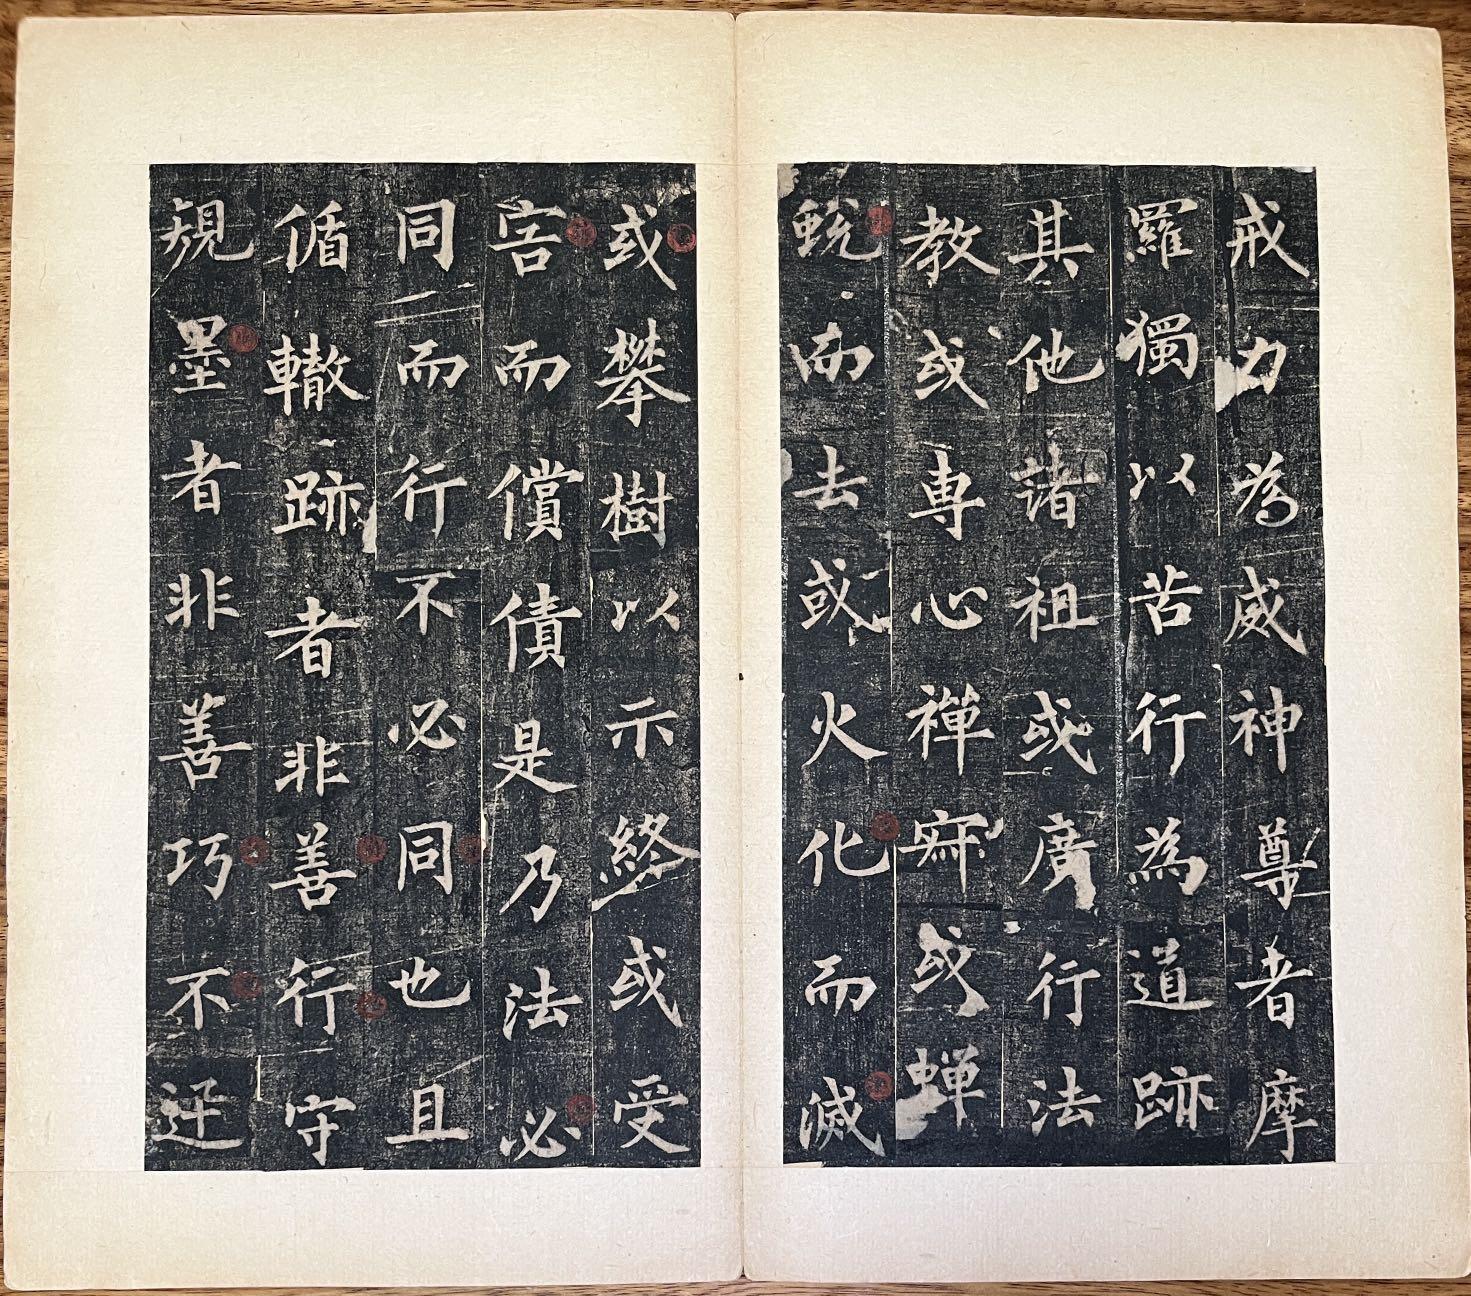 戒力為威神尊者摩
羅獨以苦行為道跡
其他諸祖或廣行法
教或專心禪寂或蟬
蛻而去或火化而滅
或攀樹以示終或受
害而償債是乃法必
同而行不必同也且
循轍跡者非善行守
規墨者非善巧不迅